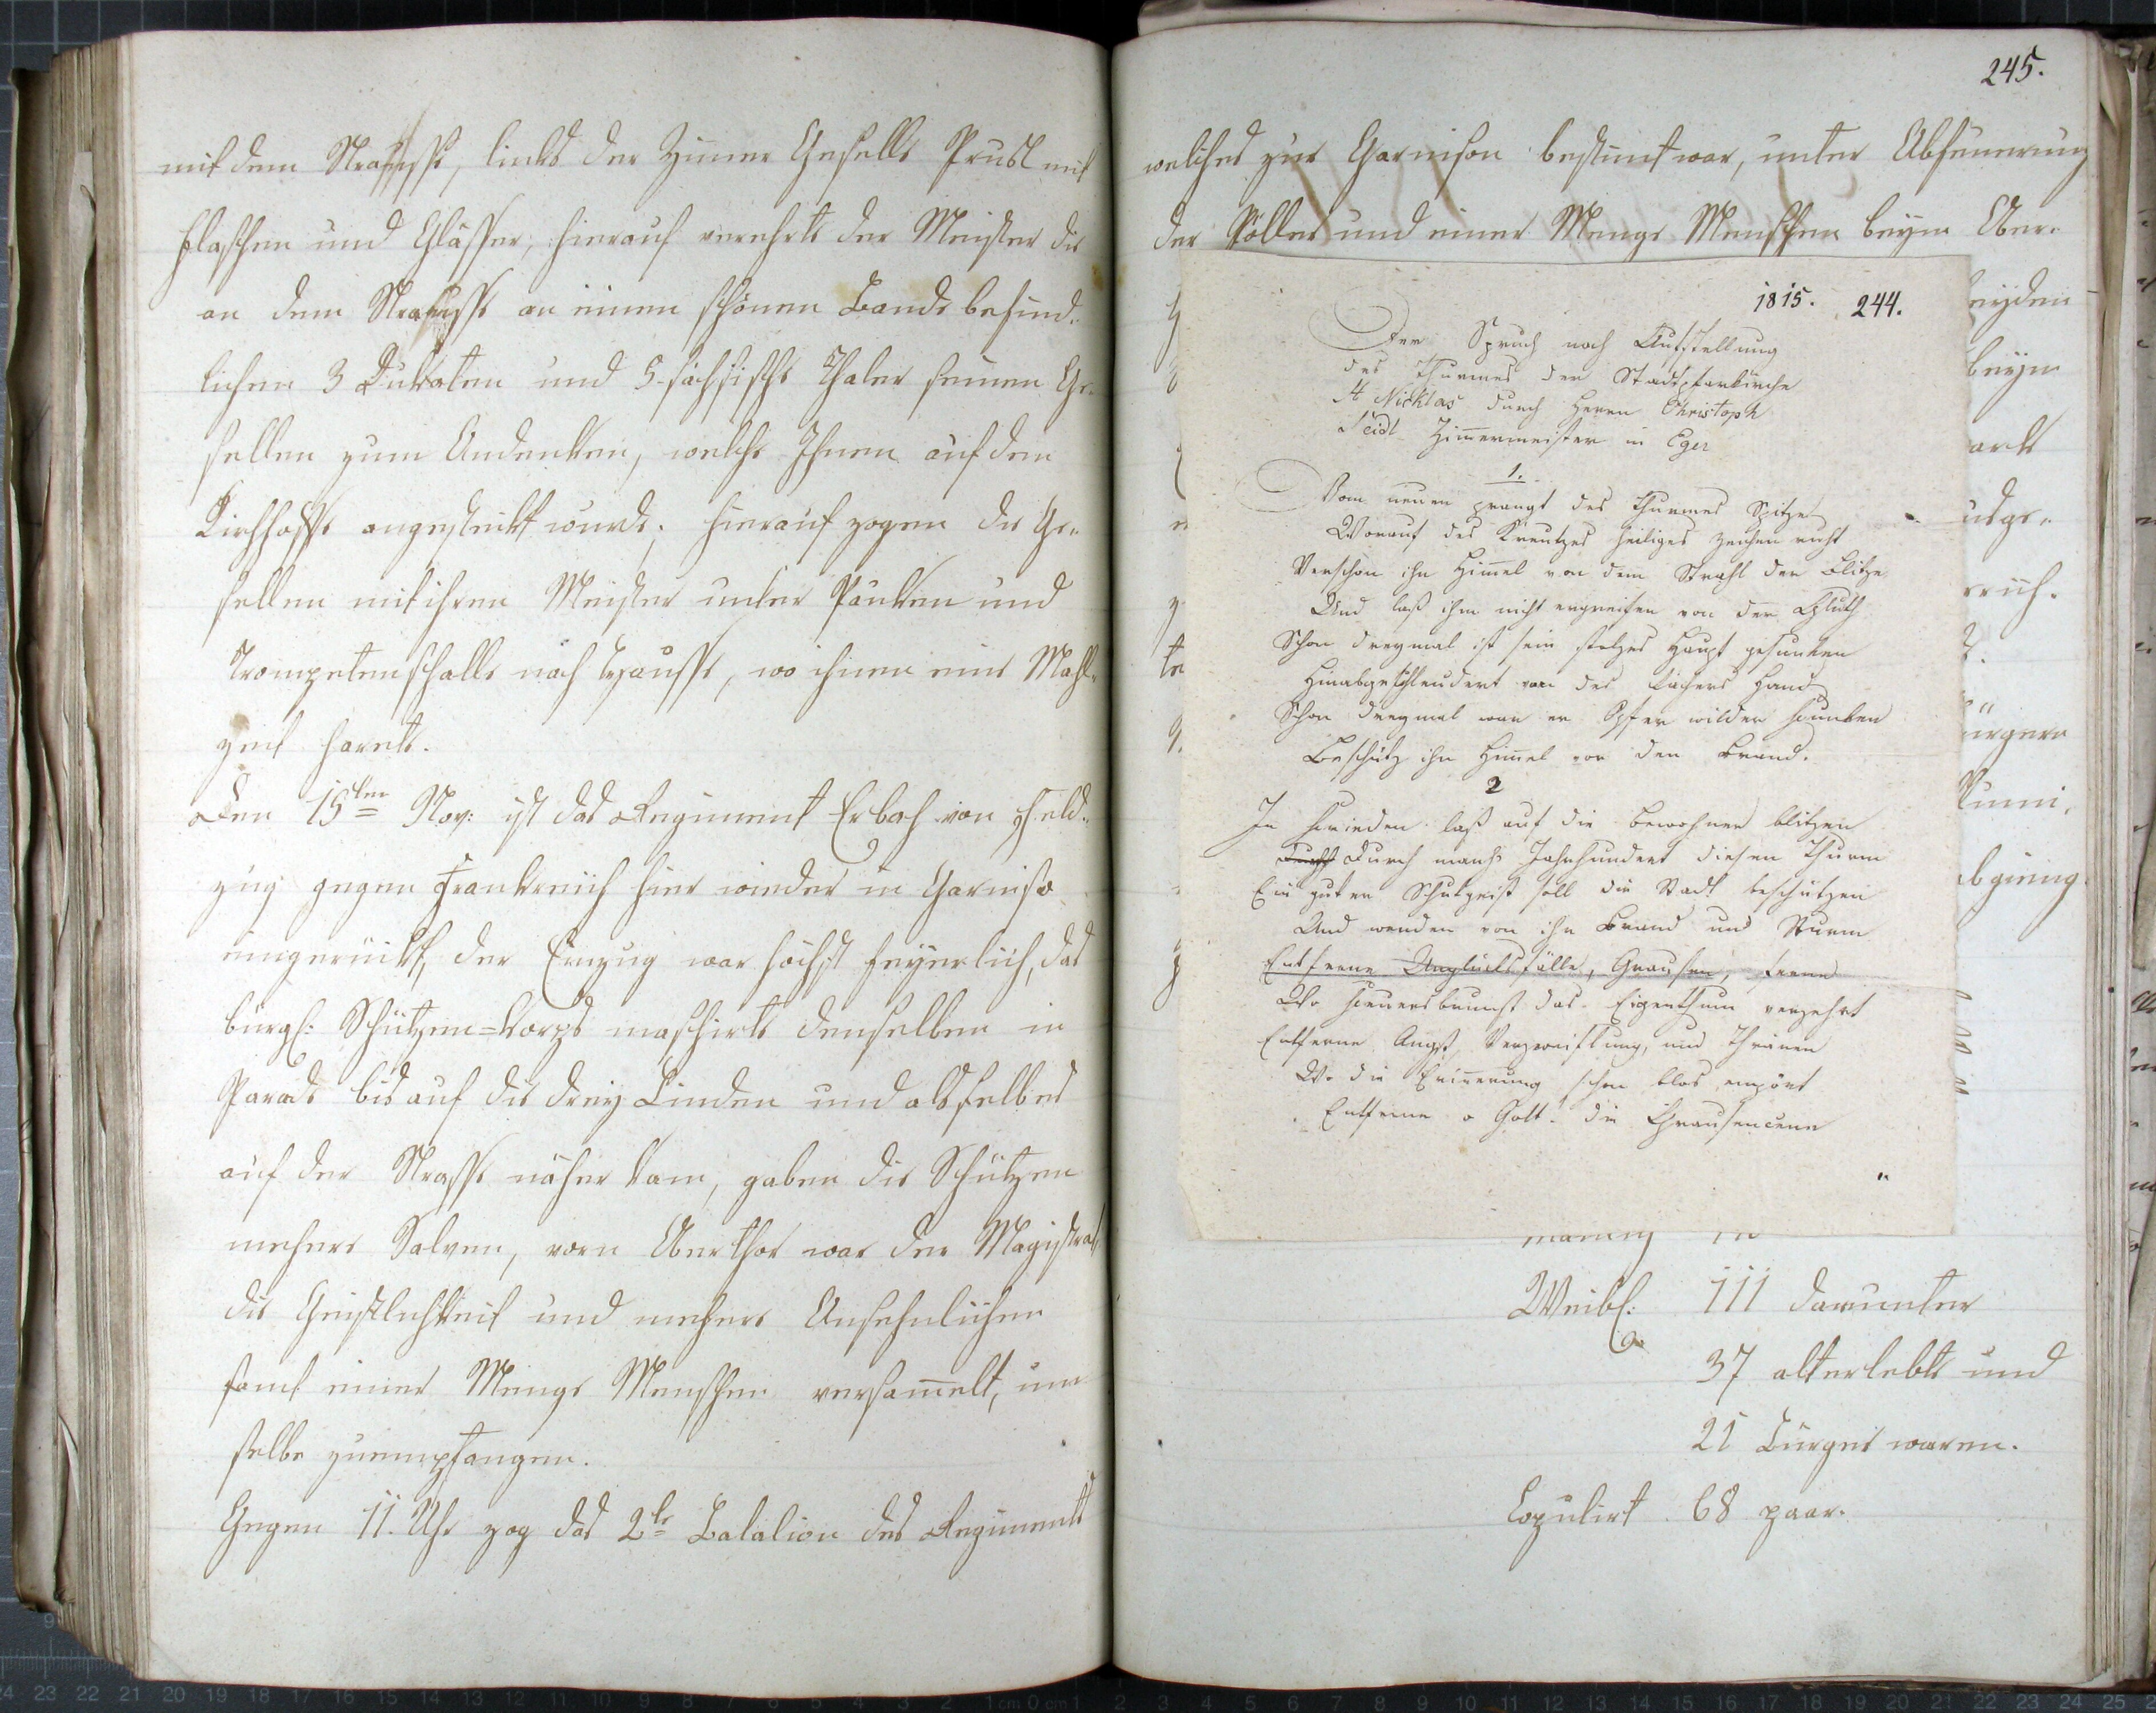 mit dem Strausse, links der Zimmer Geselle Prusl mit
Flaschen und Glässer, hierauf verehrte der Meister die
an dem Strausse an einem schönen Bande befind-
lichen 3 Dukaten und 5 sächsische Thaler seinen Ge-
sellen zum Andenken, welche Ihnen auf dem
Kirchhoffe angesteckt wurde; hierauf zogen die Ge-
sellen mit ihren Meister unter Pauken und
Trompetenschalle nach Hausse, wo ihnen eine Mahl-
zeit harrte.
Den 15ten Nov: ist das Regiment Erbach von Feld-
zug gegen Frankreich hier wieder in Garniso
eingerückt, der Einzug war höchst feyerlich, das
bürgl: Schützen=Korps maschirte denselben in
Parade bis auf die drey Linden und als selbes
auf der Strasse näher kam, gaben die Schützen
mehere Salven, vorn Oberthor war der Magistrat
die Geistlichkeit und mehere Ansehnlichen
samt einer Menge Menschen versam̅elt, um
selbe zuempfangen.
Gegen 11. Uhr zog das 2te Batalion des Regiments
245.
welches zur Garnison bestimt war, unter Abfeuerung
der Pöller und einer Menge Menschen beym Ober-
1815. 244.
Der Spruch nach Aufstellung
des Thurmes der Stadtpfarkirche
St Nicklas durch Herrn Christoph
Seidl Zim̅ermeister in Eger
1.
Vom neuen prangt des Thurmes Spitze
Worauf des Kreutzes heiliges Zeichen ruht
Verschon ihn Him̅el von dem Strahl der Blitze
Und laß ihm nicht ergreifen von der Gluth
Schon dreymal ist sein stolzes Haupt gesunken
Hinabgeschleudert von des Rächers Hand
Schon dreymal war er Opfer wilder Funken
Beschütz ihn Him̅el vor den Brand.
2
In Frieden laß auf die Bewohner blitzen
Durch Durch manch Jahrhundert diesen Thurm
Ein guter Schutzgeist soll die Stadt beschützen
Und wenden von ihr Brand und Sturm
Entferne Unglücksfälle, Grausen, ferne
Wo Feuersbrunst das Eigenthum verzehrt
Entferne Angst, Verzweiflung, und Thränen
Wo die Erin̅erung schon blos empört
Entferne o Gott! die Grausencene
eyden
beym
arkt
usge-
ürgern
bgieng
Weibl: 111 darunter
37 alterlebte und
21 Bürger waren.
Copulirt 68 paar.